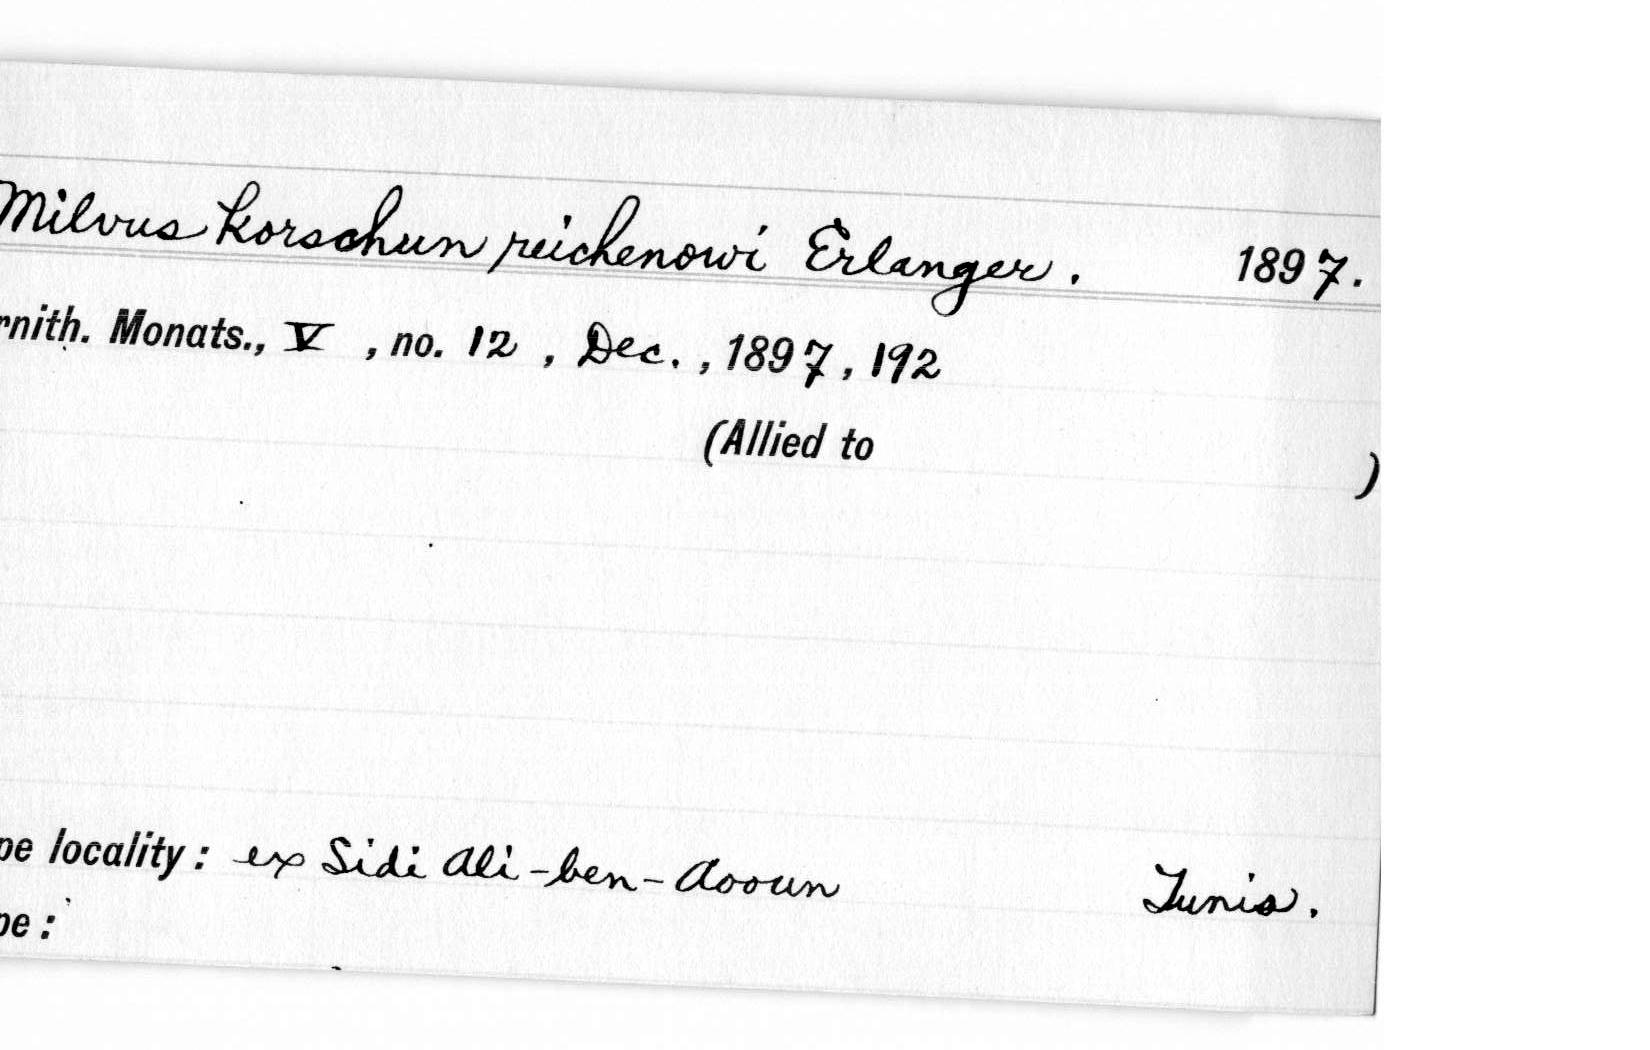 Milvus korschun reichenowi Erlanger. 1897.
rnith. Monats., V, no. 12, Dec., 1897, 192
(Allied to )
pe locality: ex Sidi Ali-ben-Aooun Tunis.
pe: